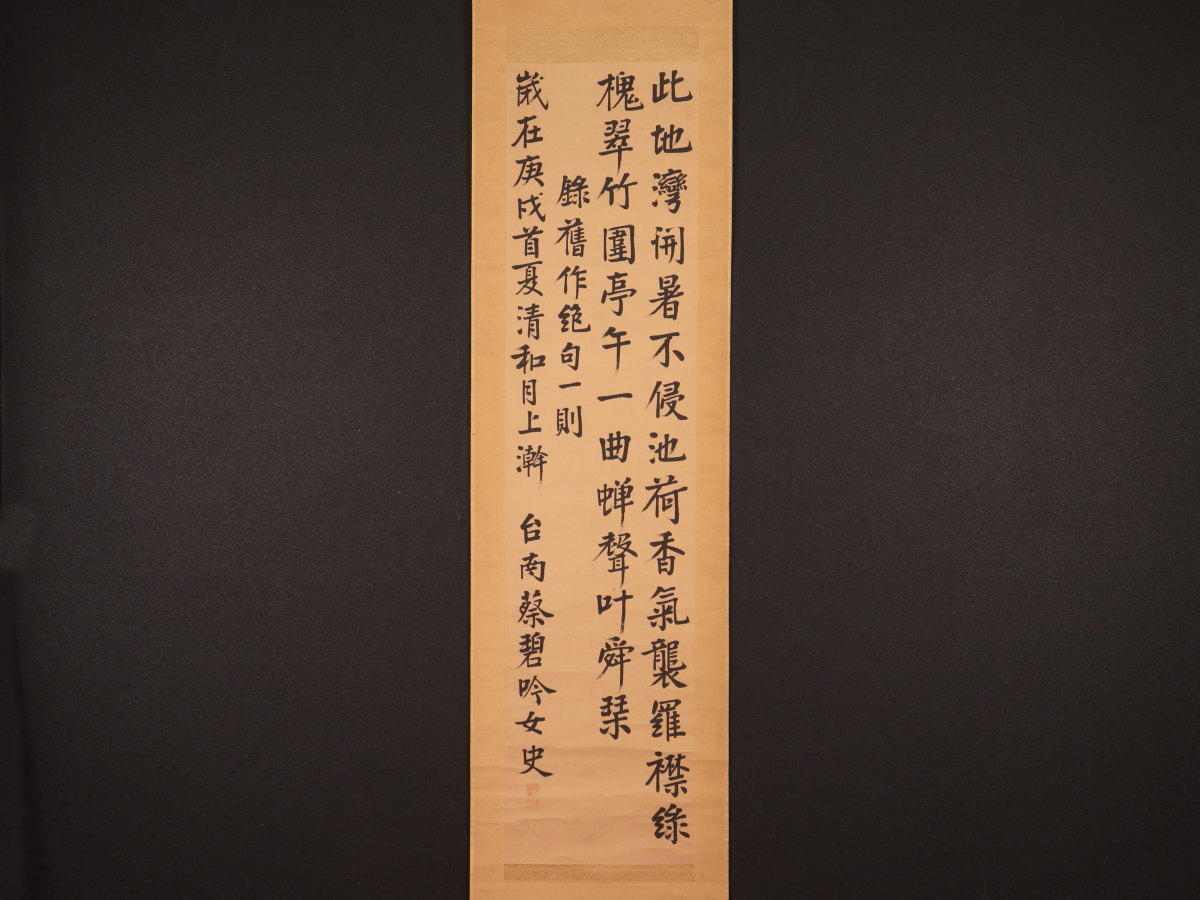 此地灣開暑不侵池荷香氣襲羅襟綠
槐翠竹圍亭午一曲蝉聲叶舜琹
錄舊作絕句一則
歲在庚戌首夏清和月上澣 台南蔡碧吟女史